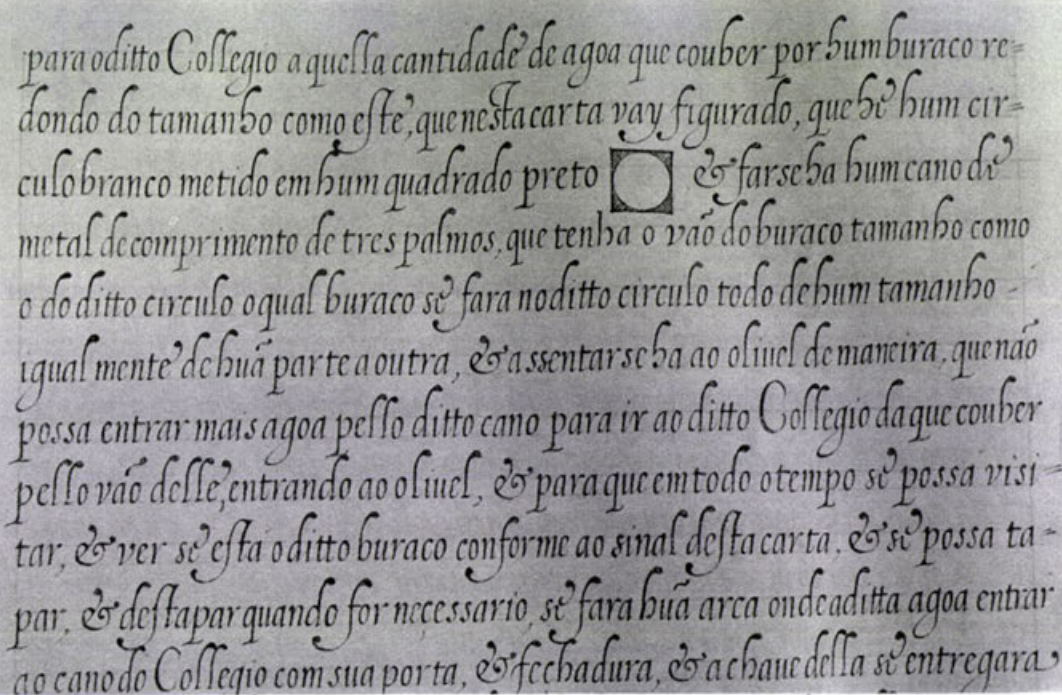 para o ditto Collegio aquella cantidade de agoa que couber por hum buraco re=
dondo do tamanho como este, que nesta carta vay figurado, que he hum cir=
culo branco metido em hum quadrado preto & farseha hum cano de
metal de comprimento de tres palmos, que tenha o vão do buraco tamanho como
o do ditto circulo o qual buraco se fara no ditto circulo todo de hum tamanho -
igual mente de huã parte a outra, & assentarseha ao oliuel de maneira, que não
possa entrar mais agoa pello ditto cano para ir ao ditto Collegio da que couber
pello vão delle, entrando ao oliuel, & para que em todo o tempo se possa visi=
tar, & ver se esta o ditto buraco conforme ao sinal desta carta, & se possa ta=
par, & destapar quando for necessario, se fara huã arca onde a ditta agoa entrar
ao cano do Collegio com sua porta, & fechadura, & a chaue della se entregara